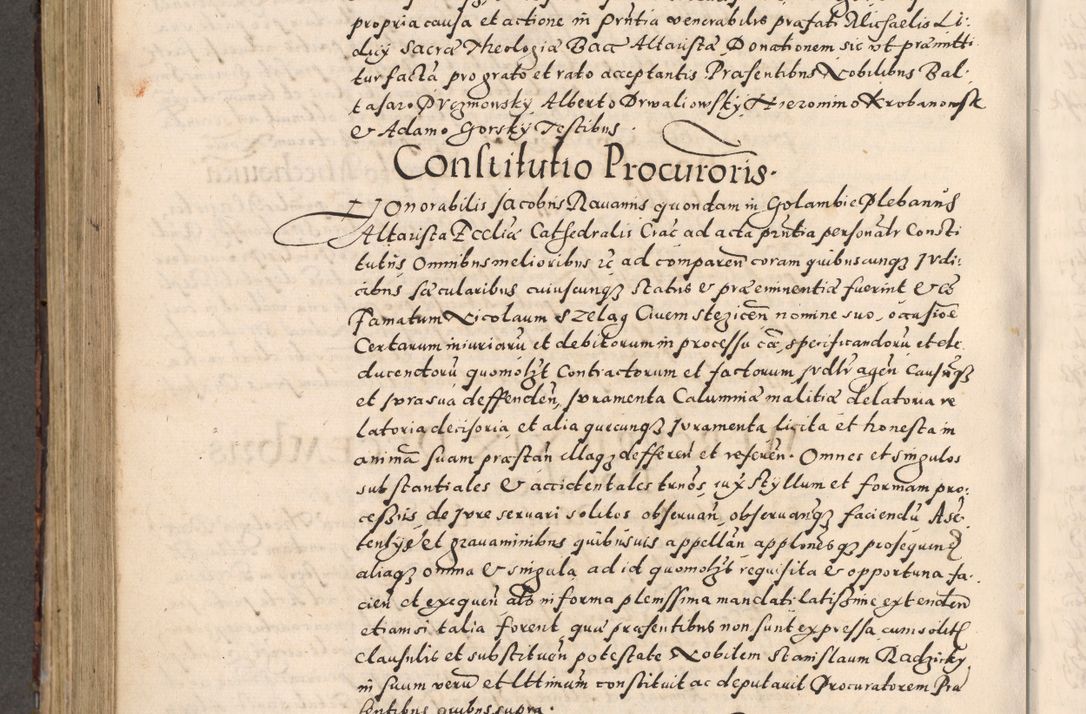 propria causa et actione in prntia venerabilis præfati Michaelis Li-
dicÿ Sacræ Theologiæ Bacc Altaristæ Donationem sic vt præmitti-
tur factā pro grato et rato acceptantis Præsentibus Nobilibus Bal-
tasaro Drezmowskÿ Alberto Drwaliowskÿ Hieronimo Krobanowsk
& Adamo Gorskÿ Testibus
Constitutio Procuroris.
Honorabilis Jacobus Rauanus quondam in Golambie Plebanus
Altarista Eccliæ Cathedralis Crac ad acta prntia personalr Consti
tutus Omnibus melioribus rc ad comparen coram quibuscunqꝫ Judi-
cibus sæcularibus cuiuscunqꝫ Status & præeminentiæ fuerint &
Famatum Nicolaum Szelag Ciuem Stezicen nomine suo, occasioē
Certarum iniuriarū et debitorum in processu cæ, specificandorū et de
ducendorū quomolȝt Contractorum et factorum judlr agen Causasqꝫ
et jura sua deffenden, juramenta Calumniæ malitiæ delatoria re
latoria decisoria et alia quæcunqꝫ juramenta licita et honesta in
animā suam præstan illaqꝫ defferen et referen. Omnes et singulos
substantiales & accidentales trnos, iuxˢ tyllum et formam pro-
cessus de jure seruari solitos obseruan, obseruarīqꝫ faciendū
et grauaminibus quibusuis appellan applonesqꝫ prosequen
aliaqꝫ omnia & singula ad id quomolȝt requisita & opportuna fa-
cien et exequen in forma plenissima mandati latissime extenden
etiamsi talia forent quæ præsentibus non sunt expressa, cum solit
clausulis et substituen potestate Nobilem Stanislaum Radzicky,
in suum verū et Lttimum constituit ac deputauit Procuratorem Præ
sentibus quibus supra.